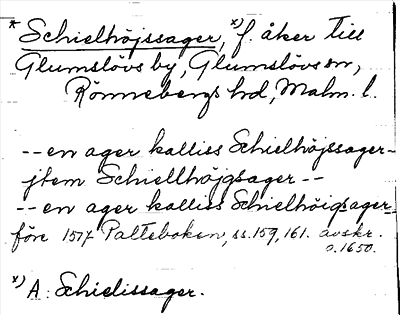 * Schielhöjssager, x) f. åker till
Glumslövs by, Glumslövs sn,
Rönnebergs hd, Malm. l.
-- en ager kalliss Schielhöjssager-
jtem Schiellhöjgsager --
-- en ager kalliss Schielhöigsager-
före 1517 Palteboken, ss. 159, 161. avskr.
o. 1650.
x) A: Schielissager.